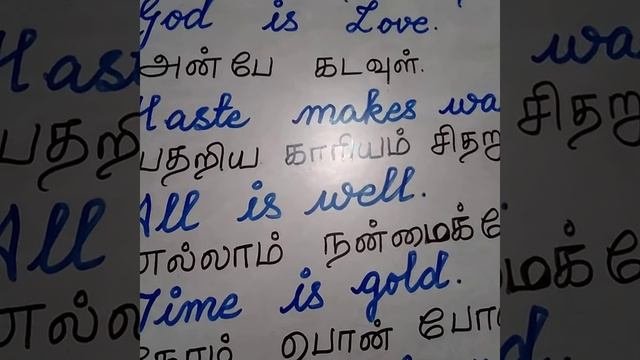 God is Love.
அன்பே கடவுள்.
Haste makes wa
பதறிய காரியம் சிதறு
All is well.
எல்லாம் நன்மைக்கே
Time is gold.
பொன் போ